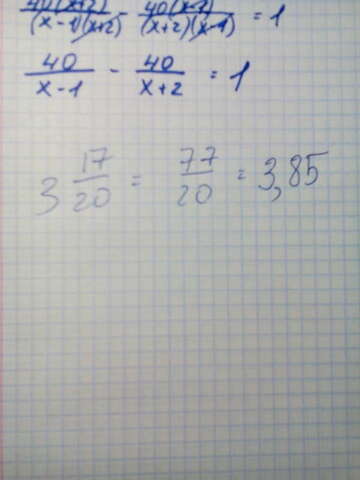 40(x+2)/(x-1)(x+2) - 40(x-1)/(x+2)(x-1) = 1
40/x-1 - 40/x+2 = 1
3 17/20 = 77/20 = 3,85